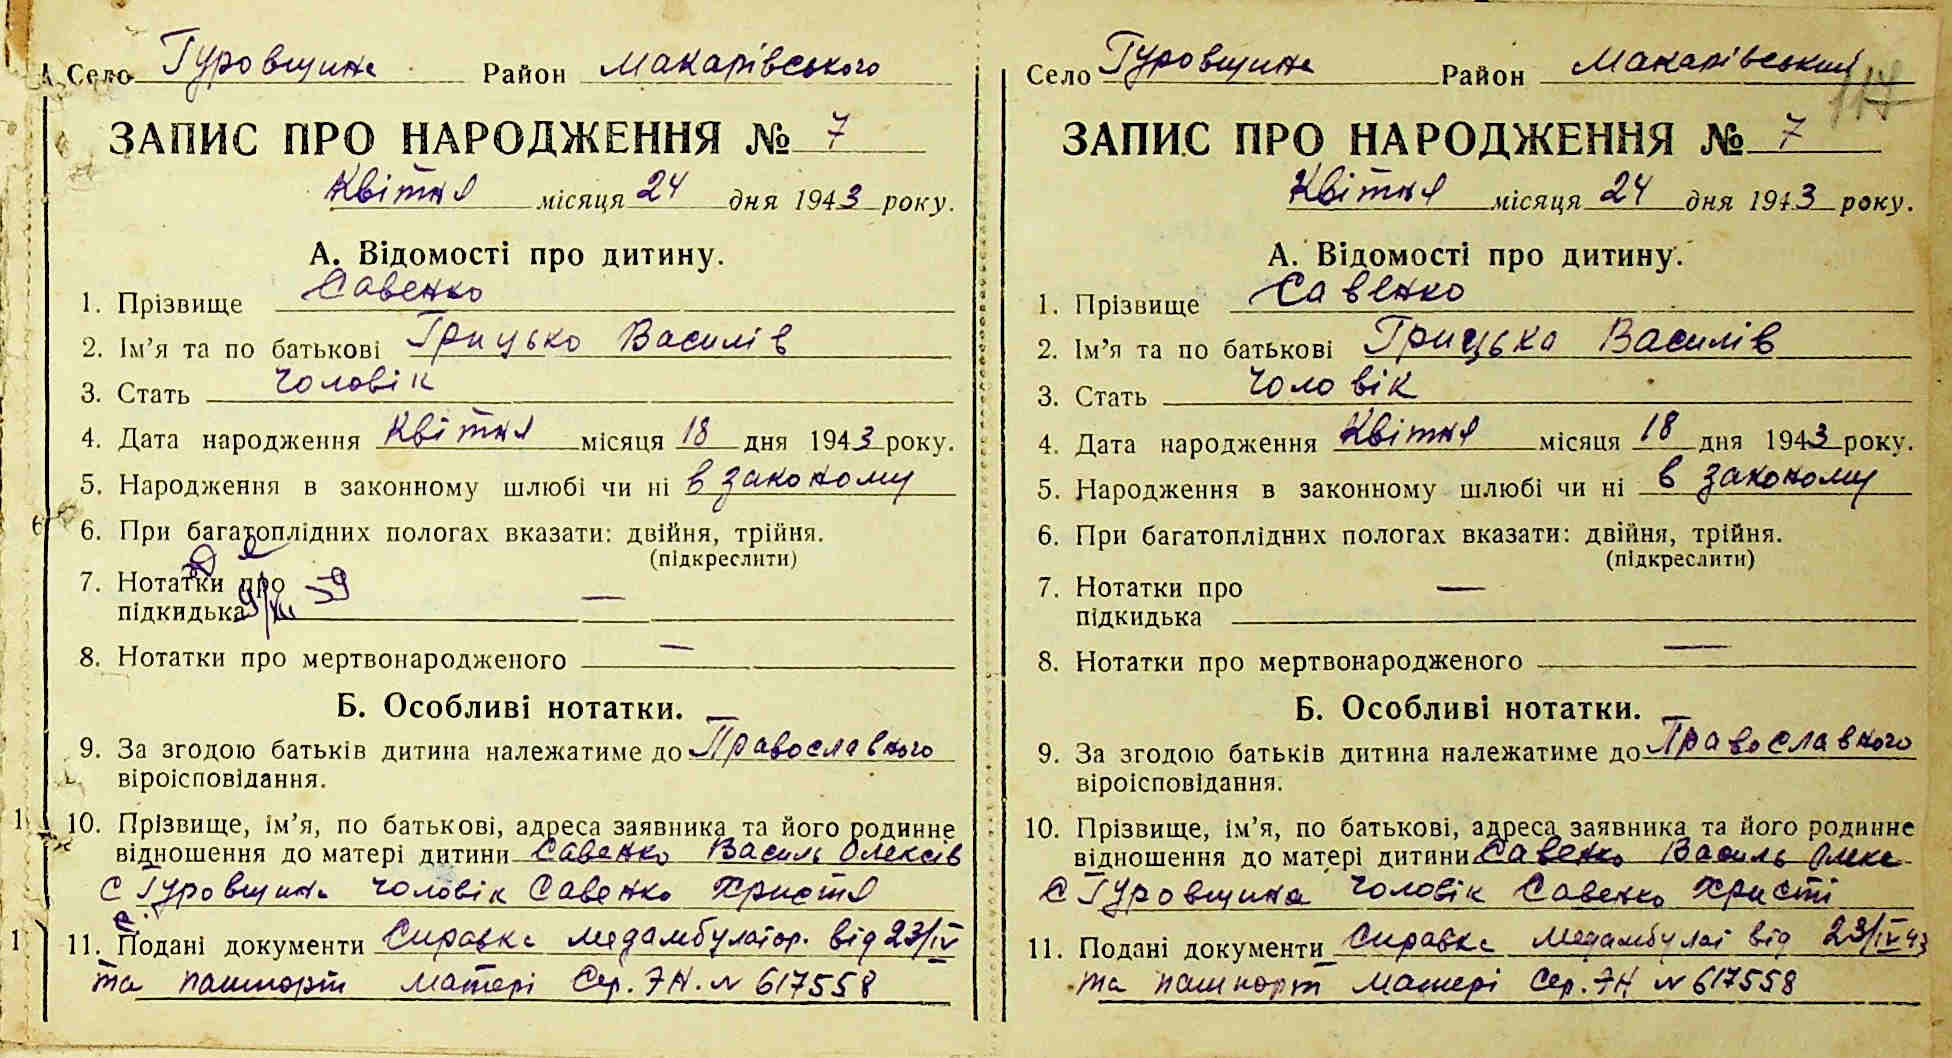 Село Гуровщина Район Макарівського
ЗАПИС ПРО НАРОДЖЕННЯ № 7
Квітня місяця 24 дня 1943 року.
А. Відомості про дитину.
1. Прізвище Савенко
2. Ім'я та по батькові Грицько Василів
3. Стать чоловік
4. Дата народження Квітня місяця 18 дня 1943 року.
5. Народження в законному шлюбі чи ні в законому
6. При багатоплідних пологах вказати: двійня, трійня.
(підкреслити)
7. Нотатки про
підкидька —
8. Нотатки про мертвонародженого —
Б. Особливі нотатки.
9. За згодою батьків дитина належатиме до Православного
віроісповідання.
10. Прізвище, ім'я, по батькові, адреса заявника та його родинне
відношення до матері дитини Савенко Василь Олексів
с Гуровщина чоловік Савенко Христя
11. Подані документи Справка медамбулатор. від 23/IV
та пашпорт матері Сер. ЭН. № 617558
Село Гуровщина Район Макарівський
117
ЗАПИС ПРО НАРОДЖЕННЯ № 7
Квітня місяця 24 дня 1943 року.
А. Відомості про дитину.
1. Прізвище Савенко
2. Ім'я та по батькові Грицька Василів
3. Стать чоловік
4. Дата народження Квітня місяця 18 дня 1943 року.
5. Народження в законному шлюбі чи ні в законому
6. При багатоплідних пологах вказати: двійня, трійня.
(підкреслити)
7. Нотатки про —
підкидька
8. Нотатки про мертвонародженого —
Б. Особливі нотатки.
9. За згодою батьків дитина належатиме до Православного
віроісповідання.
10. Прізвище, ім'я, по батькові, адреса заявника та його родинне
відношення до матері дитини Савенко Василь Олекс
с Гуровщина чоловік Савенко Христі
11. Подані документи Справка Медамбулат від 23/IV 43
та пашпорт матері Сер. ЭН № 617558